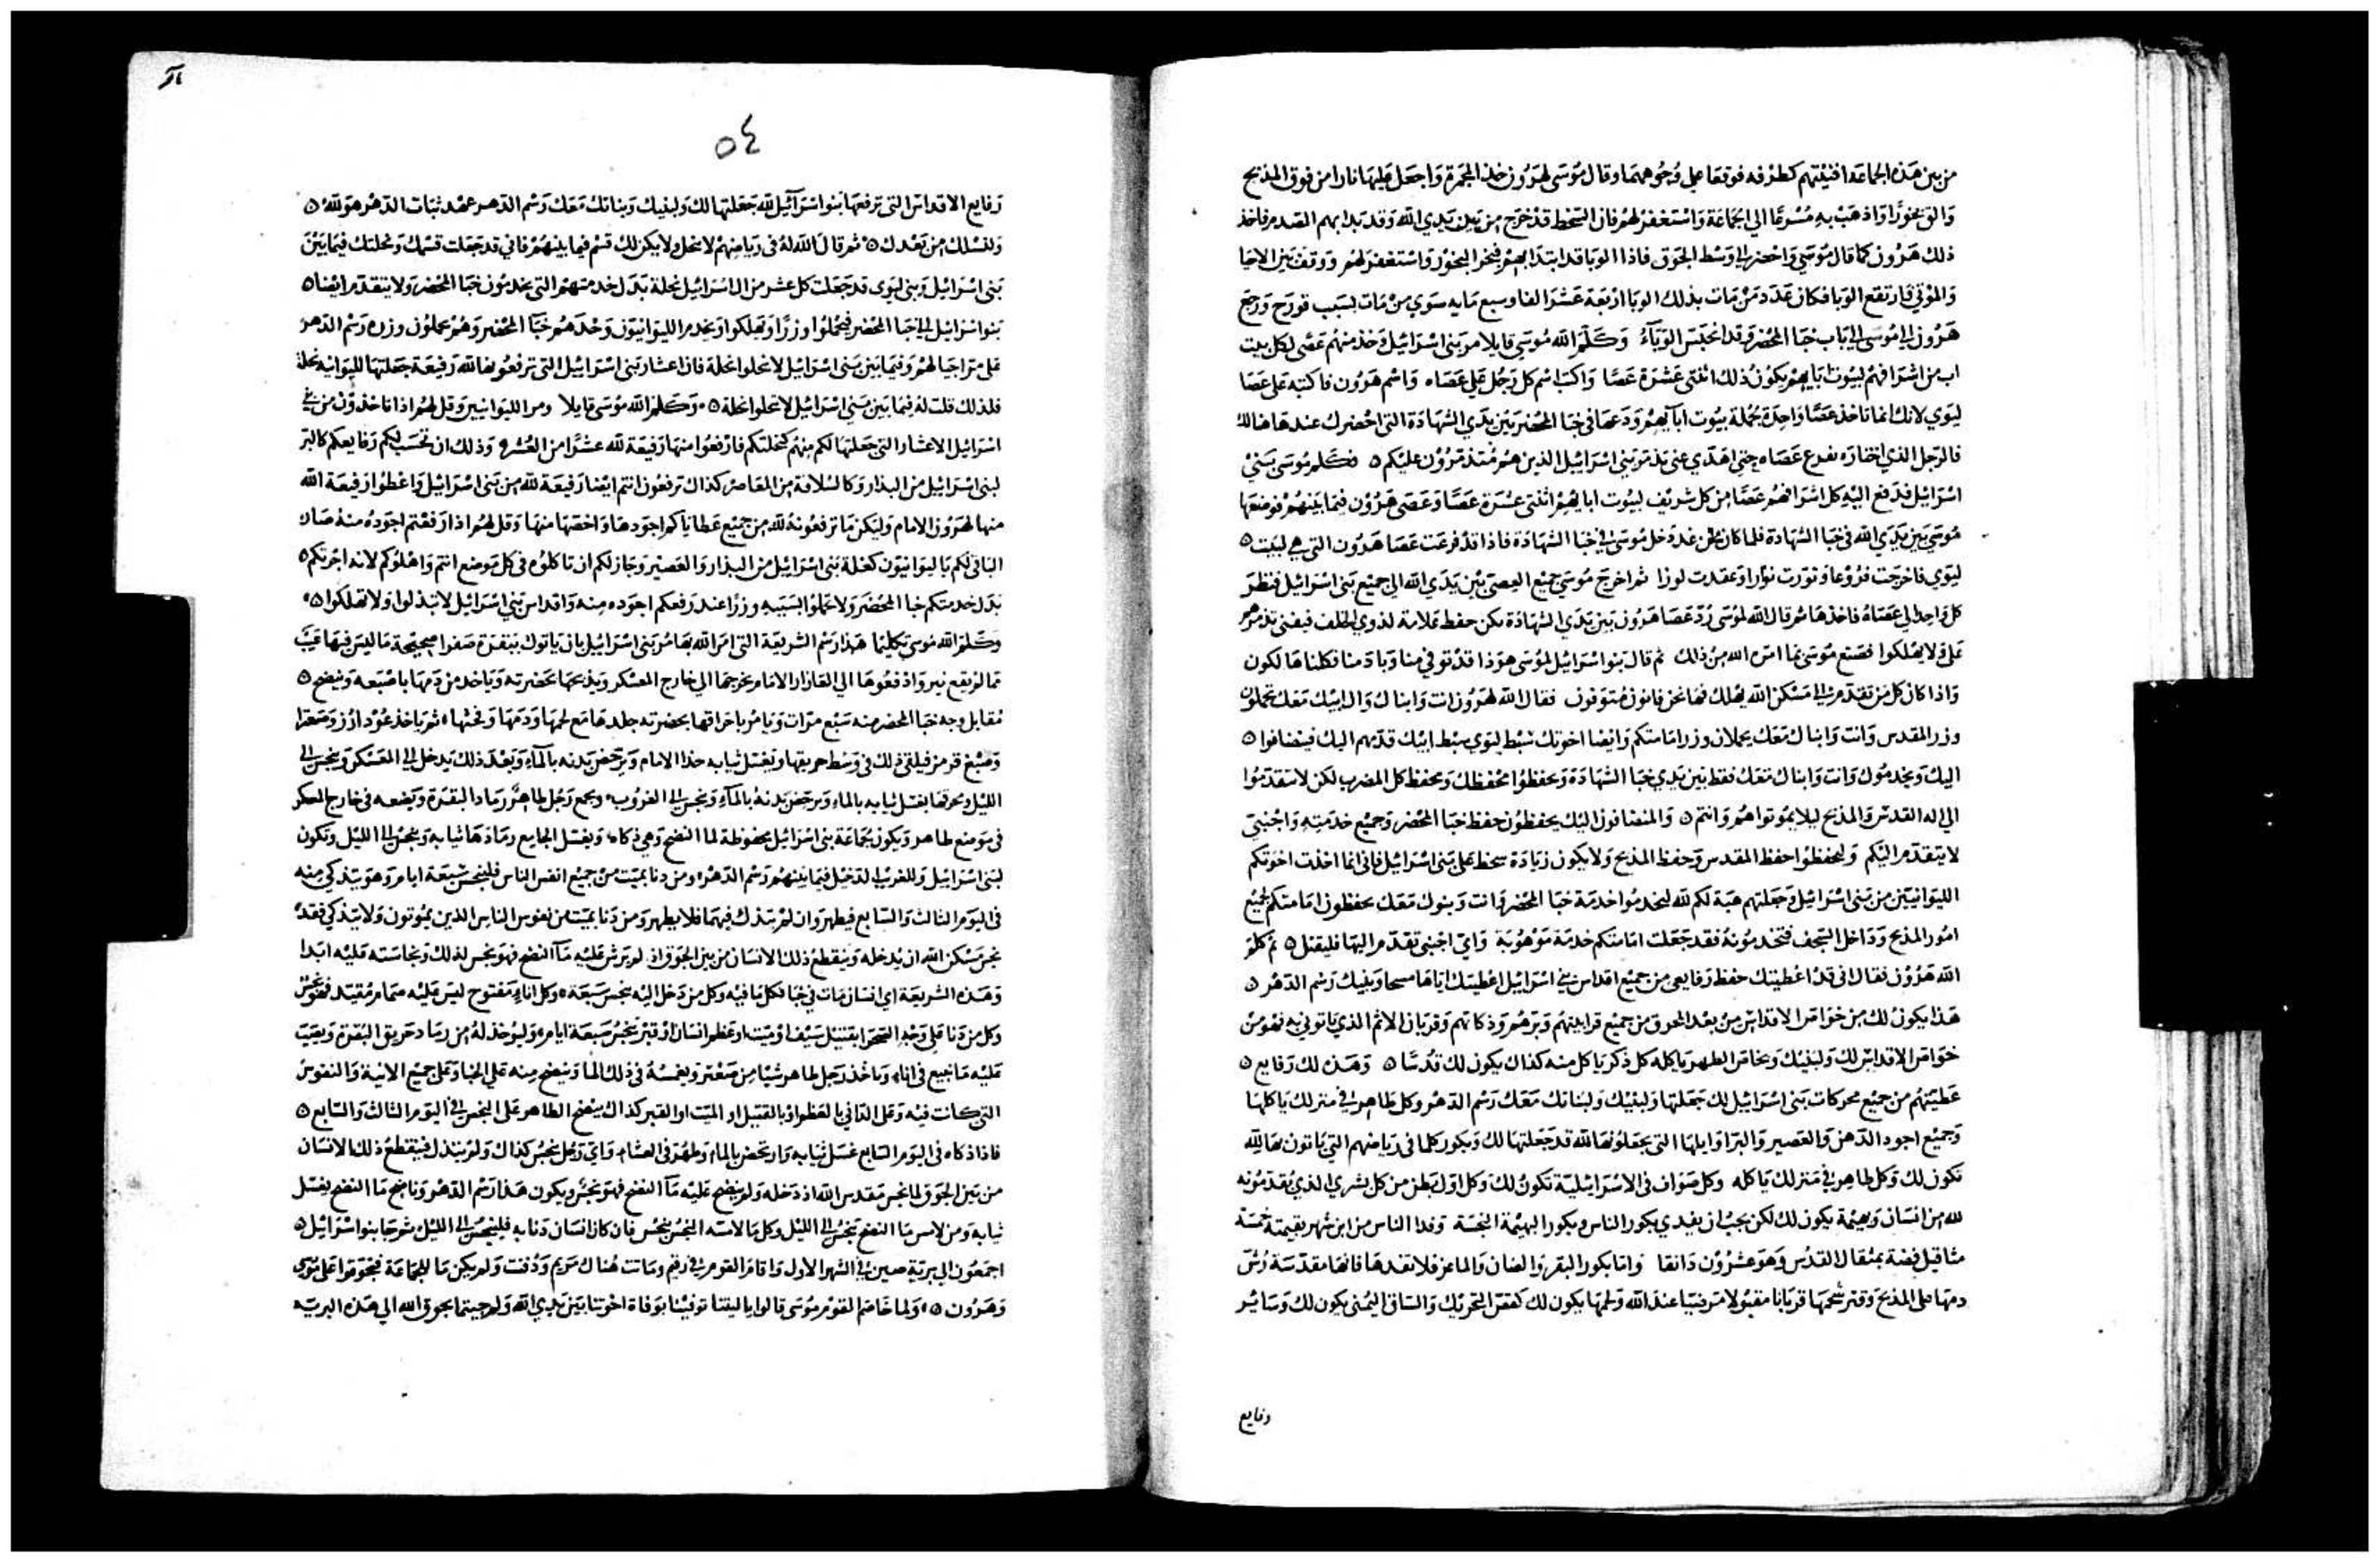 من بين هذه الجماعة افنيتهم كطرفه فوقعا على وجوههما وقال موسى لهرون خذ المجمرة واجعل عليها نارا من فوق المذبح
والق بخورا واذهب به مسرعا الي الجماعة واستغفر لهم فان السخط قد خرج من بين يدي الله وقد بدا بهم الصدم فاخذ
ذلك هرون كما قال موسي واحضر الي وسط الجوق فاذا الوبا قد ابتدا بهم فبخر البخور واستغفر لهم ووقف بين الاحيا
والموتي فارتفع الوبا فكان عدد من مات بذلك الوبا اربعة عشر الفا وسبع مايه سوي من مات بسبب قورح ورجع
هرون الي موسى الي باب خبا المحضر وقد انحبس الوباء وكلم الله موسي قايلا مر بني اسرائيل وخذ منهم عصى لكل بيت
اب من اشرافهم لبيوت ابايهم يكون ذلك اثنتى عشرة عصا واكتب اسم كل رجل على عصاه واسم هرون فاكتبه على عصا
ليوي لانك انما تاخذ عصا واحدة لجملة بيوت ابايهم ودعها في خبا المحضر بين يدي الشهادة التي احضرك عندها هنالك
فالرجل الذي اختاره تفرع عصاه حتى اهدي عنى تذمر بني اسرائيل الذين هم متذمرون عليكم ه فكلم موسى بني
اسرائيل فدفع اليه كل اشرافهم عصا من كل شريف لبيوت ابايهم اثنتى عشرة عصا وعصى هرون فيما بينهم فوضعها
موسى بين يدي الله في خبا الشهادة فلما كان من غد دخل موسى الي خبا الشهادة فاذا قد فرعت عصا هرون التي هي لبيت ه
ليوي فاخرجت فروعا ونورت نوارا وعقدت لوزا ثم اخرج موسي جميع العصي بين يدي الله الي جميع بني اسرائيل فنظر
كل واحد الي عصاه فاخذها ثم قال الله لموسى رد عصا هرون بين يدي الشهادة تكن حفظ علامة لذوي الخلف فيفنى تذمرهم
على ولا يهلكوا فصنع موسى بما امره الله من ذلك ثم قال بنو اسرائيل لموسى هوذا قد توفي منا وباد منا فكلنا هالكون
واذا كان كل من تقدم الي مسكن الله يهلك فها نحن فانون متوفون فقال الله لهرون انت وابناك وال ابيك معك تحملون
وزر المقدس وانت وابناك معك يحملان وزر امامتكم وايضا اخوتك سبط ليوي سبط ابيك قدمهم اليك فينضافوا ه
اليك ويخدموك وانت وابناك معك فقط بين يدي خبا الشهادة ويحفظوا محفظك ومحفظ كل المضرب لكن لا يتقدموا
الي اله القدس والمذبح ليلا يموتوا هم وانتم ه والمنضافون اليك يحفظون حفظ خبا المحضر وجميع خدمته واجنبي
لا يتقدم اليكم وليحفظوا حفظ المقدس وحفظ المذبح ولا يكون زيادة سخط على بني اسرائيل فاني انما اخذت اخوتكم
الليوانيين من بني اسرائيل وجعلتهم هبة لكم لله ليخدموا خدمة خبا المحضر وانت وبنوك معك تحفظون امامتكم لجميع
امور المذبح وداخل السجف فتخدمونه فقد جعلت امامتكم خدمة موهوبة واي اجنبي تقدم اليها فليقتل ه ثم كلم
الله هرون فقال اني قد اعطيتك حفظ رفايعي من جميع اقداس بني اسرائيل اعطيتك اياها مسحا وبنيك رسم الدهر ه
هذا يكون لك من خواص الاقداس من بعد المحرق من جميع قرابينهم وبرهم وذكاتهم وقربان الاثم الذي ياتوني به فهو من
خواص الاقداس لك ولبنيك وبخاص الطهر ياكله كل ذكر ياكل منه كذاك يكون لك قدسا ه وهذه لك رفايع ه
عطيتهم من جميع محركات بني اسرائيل لك جعلتها ولبنيك ولبناتك معك رسم الدهر وكل طاهر في منزلك ياكلها
وجميع اجود الدهن والعصير والبر اوايلها التي يجعلونها لله قد جعلتها لك وبكور كلما في رياضهم التي ياتون بها لله
تكون لك وكل طاهر في منزلك ياكله وكل صواف في الاسرائيلية تكون لك وكل اول بطن من كل بشري الذي يقدمونه
لله من انسان وبهيمة يكون لك لكن يجب ان يفدي بكور الناس وبكور البهيمة النجسة وفدا الناس من ابن شهر بقيمتة خمسة
مثاقيل فضة بمثقال القدس وهو عشرون دانقا واما بكور البقر والضان والماعز فلا تفدها فانها مقدسة رش
دمها على المذبح وقتر شحمها قربانا مقبولا مرضيا عند الله ولحمها يكون لك كقص التحريك والساق اليمنى يكون لك وساير
رفايع
٥٤
رفايع الاقداس التي ترفعها بنو اسرائيل لله جعلتها لك ولبنيك وبناتك معك رسم الدهر عهد ثبات الدهر هو لله ه
ولنسلك من بعدك ه ثم قال الله له في رياضهم لا تنحل ولا يكن لك قسم فيما بينهم فاني قد جعلت قسمك ونحلتك فيما بين
بني اسرائيل وبني ليوي قد جعلت كل عشر من ال اسرائيل نحلة بدل خدمتهم التي يخدمون خبا المحضر ولا يتقدم ايضا ه
بنو اسرائيل الي خبا المحضر فيحملوا وزرا ويهلكوا ويخدم الليوانيون وحدهم خبا المحضر وهم يحملون وزره رسم الدهر
على مر اجيالهم وفيما بين بني اسرائيل لا ينحلوا نحلة فان اعشار بني اسرائيل التي ترفعونها لله رفيعة جعلتها لليوانيه نحلة
فلذلك قلت له فيما بين بني اسرائيل لا ينحلوا نحلة ه وكلم الله موسى قايلا ومر الليوانيين وقل لهم اذا تاخذون من بني
اسرائيل الاعشار التي جعلتها لكم منهم كنحلتكم فارفعوا منها رفيعة لله عشرا من العشر ه وذلك ان تحسب لكم رفايعكم كالبر
لبني اسرائيل من البذار وكالسلافة من المعاصر كذاك ترفعون انتم ايضا رفيعة لله من بني اسرائيل واعطوا رفيعة الله
منها لهرون الامام وليكن ما ترفعونه لله من جميع عطاياكم اجودها واخصها منها وقل لهم اذا رفعتم اجوده منه صار
الباقي لكم ياليوانيون كغلة بني اسرائيل من البذار والعصير وجاز لكم ان تاكلوه في كل موضع انتم واهلوكم لانه اجرتكم ه
بدل خدمتكم خبا المحضر ولا تحملوا بسببه وزرا عند رفعكم اجوده منه واقداس بني اسرائيل لا تبذلوا ولا تهلكوا ه
وكلم الله موسى تكليما هذا رسم الشريعة التي امر الله بها مر بني اسرائيل بان ياتوك ببقرة صفرا صحيحة ما ليس فيها عيب
مما لم يقع نير وادفعوها الي العازار الامام يخرجها الي خارج العسكر ويذبحها بحضرته وياخذ من دمها باصبعه وينضح ه
مقابل وجه خبا المحضر منه سبع مرات ويامر باحراقها بحضرته جلدها مع لحمها ودمها وفحثها ثم ياخذ عود ارز وصعترا
وصبغ قرمز فيلقي ذلك في وسط حريقها ويغسل ثيابه هذا الامام ويرحض بدنه بالماء وبعد ذلك يدخل الي العسكر وينجس الي
الليل ومحرقها يغسل ثيابه بالماء ويرحض بدنه بالماء وينجس الي الغروب ويجمع رجل طاهر رماد البقرة ويضعه في خارج العسكر
في موضع طاهر ويكون لجماعة بني اسرائيل محفوظة لما النضح وهي ذكاه ويغسل الجامع رمادها ثيابه وينجس الي الليل وتكون
لبني اسرائيل وللغريب الدخيل فيما بينهم رسم الدهر ومن دنا بميت من جميع انفس الناس فلينجس سبعة ايام وهو يتذكي منه
في اليوم الثالث والسابع فيطهر وان لم يتذك فيهما فلا يطهر ومن دنا بميت من نفوس الناس الذين يموتون ولا يتذكي فقد
نجس مسكن الله ان يدخله وينقطع ذلك الانسان من بين الجوق اذ لم يرش عليه ماء النضح فهو نجس لذلك ونجاسته عليه ابدا
وهذه الشريعة اي انسان مات في خبا فكل ما فيه وكل من دخل اليه ينجس سبعة ه وكل اناء مفتوح ليس عليه صمام مقيد فهو نجس
وكل من دنا على وجه الصحرا بقتيل سيف او ميت او عظم انسان او قبر ينجس سبعة ايام وليوخذ له من رماد حريق البقرة ويصب
عليه ما نبيع في اناء وياخذ رجل طاهر شيا من صعتر ويغمسه في ذلك الما وينضح منه على الخبا وعلى جميع الانية والنفوس
التي كانت فيه وعلى الداني بالعظم او بالقتيل او الميت او القبر كذاك ينضح الطاهر على النجس في اليوم الثالث والسابع ه
فاذا ذكاه في اليوم السابع غسل ثيابه وارتحض بالماء وطهر في العشاء واي رجل نجس كذاك ولم يتذك فينقطع ذلك الانسان
من بين الجوق لما نجس مقدس الله اذ دخله ولم ينضح عليه ماء النضح فهو نجس ويكون هذا رسم الدهر وناضح ما النضح يغسل
ثيابه ومن لامس ما النضح نجس الي الليل وكل ما لامسه النجس ينجس فان كان انسان دنا به فلينجس الي الليل ثم جا بنو اسرائيل ه
اجمعون الي برية صين في الشهر الاول واقام القوم في رقيم وماتت هناك مريم ودفنت ولم يكن ما للجماعة فتجوقوا على موسى
وهرون ه ولما خاصم القوم موسى قالوا ياليتنا توفينا بوفاة اخوتنا بين يدي الله ولم جيتما بجوق الله الي هذه البريه